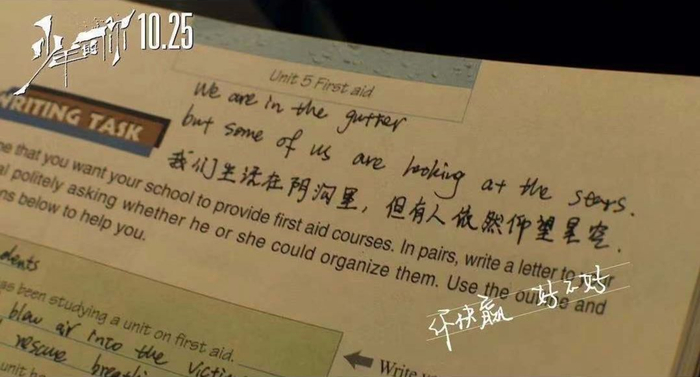 少年的你 10.25
Unit 5 First aid
We are in the gutter
but some of us are looking at the stars.
我们生活在阴沟里，但有人依然仰望星空.
WRITING TASK
e that you want your school to provide first aid courses. In pairs, write a letter to
al politely asking whether he or she could organize them. Use the outline and
ns below to help you.
dents
as been studying a unit on first aid.
blow air into the victi
rescue breathin
unit h
Write
你快赢 好不好